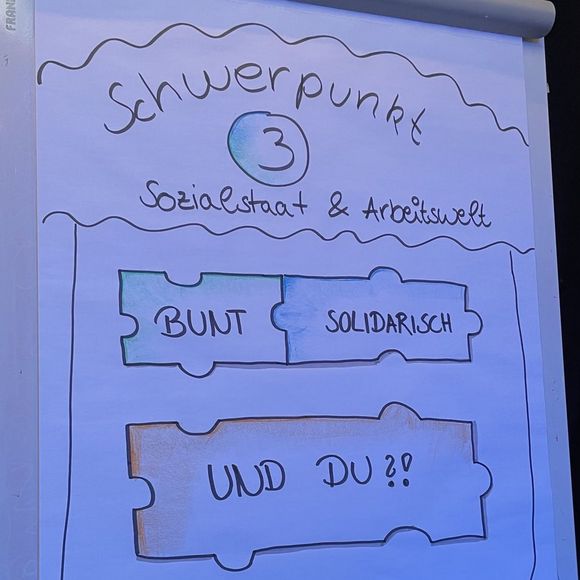 FRAN
Schwerpunkt
3
Sozialstaat & Arbeitswelt
BUNT SOLIDARISCH
UND DU?!